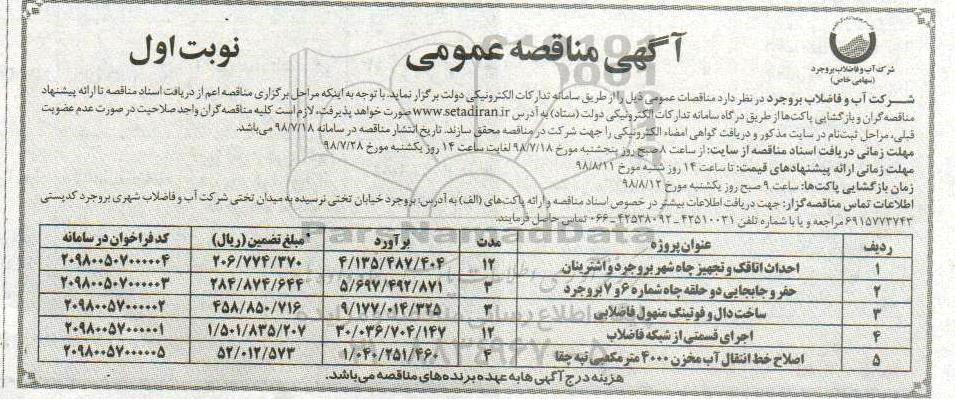 آگهی مناقصه عمومی
نوبت اول
شرکت آب و فاضلاب بروجرد
(سهامی خاص)
شرکت آب و فاضلاب بروجرد در نظر دارد مناقصات عمومی ذیل را از طریق سامانه تدارکات الکترونیکی دولت برگزار نماید. با توجه به اینکه مراحل برگزاری مناقصه اعم از دریافت اسناد مناقصه تا ارائه پیشنهاد
مناقصه گران و بازگشایی پاکت‌ها از طریق درگاه سامانه تدارکات الکترونیکی دولت (ستاد) به آدرس www.setadiran.ir صورت خواهد پذیرفت، لازم است کلیه مناقصه گران واجد صلاحیت در صورت عدم عضویت
قبلی، مراحل ثبت‌نام در سایت مذکور و دریافت گواهی امضاء الکترونیکی را جهت شرکت در مناقصه محقق سازند. تاریخ انتشار مناقصه در سامانه ۹۸/۷/۱۸ می‌باشد.
مهلت زمانی دریافت اسناد مناقصه از سایت: از ساعت ۸ صبح روز پنجشنبه مورخ ۹۸/۷/۱۸ لغایت ساعت ۱۴ روز یکشنبه مورخ ۹۸/۷/۲۸
مهلت زمانی ارائه پیشنهادهای قیمت: تا ساعت ۱۴ روز شنبه مورخ ۹۸/۸/۱۱
زمان بازگشایی پاکت‌ها: ساعت ۹ صبح روز یکشنبه مورخ ۹۸/۸/۱۲
اطلاعات تماس مناقصه گزار: جهت دریافت اطلاعات بیشتر در خصوص اسناد مناقصه و ارائه پاکت‌های (الف) به آدرس: بروجرد خیابان تختی نرسیده به میدان تختی شرکت آب و فاضلاب شهری بروجرد کدپستی
۶۹۱۵۷۷۳۷۴۳ مراجعه و یا با شماره تلفن ۴۲۵۱۰۰۳۱ - ۴۲۵۳۸۰۹۲ - ۰۶۶ تماس حاصل فرمایند.
ردیف عنوان پروژه مدت برآورد مبلغ تضمین (ریال) کد فراخوان در سامانه
۱ احداث اتاقک و تجهیز چاه شهر بروجرد و اشترینان ۱۲ ۴/۱۳۵/۴۸۷/۴۰۴ ۲۰۶/۷۷۴/۳۷۰ ۲۰۹۸۰۰۵۰۷۰۰۰۰۰۴
۲ حفر و جابجایی دو حلقه چاه شماره ۶ و ۷ بروجرد ۳ ۵/۶۹۷/۴۹۲/۸۷۱ ۲۸۴/۸۷۴/۶۴۴ ۲۰۹۸۰۰۵۰۷۰۰۰۰۰۳
۳ ساخت دال و فوتینگ منهول فاضلابی ۳ ۹/۱۷۷/۰۱۴/۳۲۵ ۴۵۸/۸۵۰/۷۱۶ ۲۰۹۸۰۰۵۷۰۰۰۰۰۲
۴ اجرای قسمتی از شبکه فاضلاب ۱۲ ۳۰/۰۳۶/۷۰۴/۱۴۷ ۱/۵۰۱/۸۳۵/۲۰۷ ۲۰۹۸۰۰۵۷۰۰۰۰۰۱
۵ اصلاح خط انتقال آب مخزن ۴۰۰۰ مترمکعبی تپه چغا ۴ ۱/۰۴۰/۲۵۱/۴۶۰ ۵۲/۰۱۲/۵۷۳ ۲۰۹۸۰۰۵۷۰۰۰۰۰۵
هزینه درج آگهی ها به عهده برنده‌های مناقصه می‌باشد.
ParsNamadData